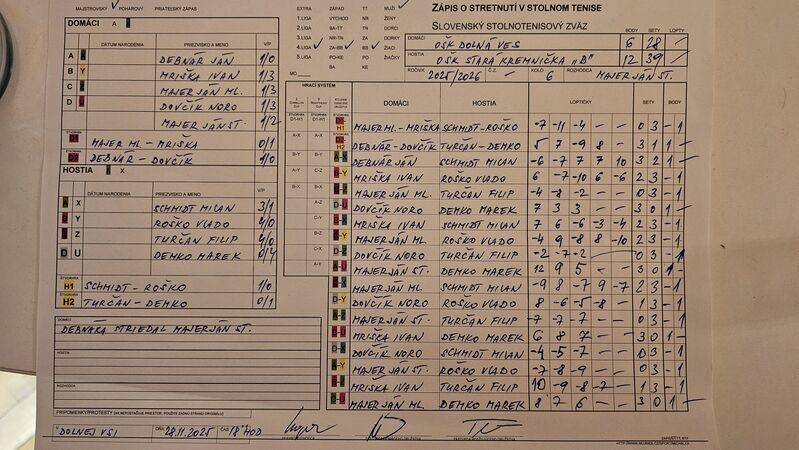 MAJSTROVSKÝ ✓ POHÁROVÝ PRIATEĽSKÝ ZÁPAS
DOMÁCI A
DÁTUM NARODENIA PRIEZVISKO A MENO V/P
A DEBNÁR JÁN 1/0
B Y MRIŠKA IVAN 1/3
C MAJERJÁN ML. 1/3
D U DOVČÍK NORO 1/3
MAJERJÁN ST. 1/2
D1 MAJER ML - MRIŠKA 0/1
D2 DEBNÁR - DOVČÍK 1/0
HOSTIA A X
DÁTUM NARODENIA PRIEZVISKO A MENO V/P
A X SCHMIDT MILAN 3/1
B Y ROŠKO VLADO 4/0
C Z TURČAN FILIP 4/0
D U DEMKO MAREK 0/4
ŠTVORHRA
H1 SCHMIDT - ROŠKO 1/0
H2 TURČAN - DEMKO 0/1
DOMÁCI
DEBNÁRA STRIEDAL MAJERJÁN ST.
HOSTIA
ROZHODCA
PRIPOMIENKY/PROTESTY (AK NEPOSTAČUJE PRIESTOR, POUŽITE ZADNÚ STRANU ORIGINÁLU)
V DOLNEJ VSI DŇA 28.11.2025 ČAS 18 HOD
EXTRA ZÁPAD TT MUŽI
1.LIGA VÝCHOD NR ŽENY
2.LIGA BA-TT TN DORCI
3.LIGA NR-TN ZA DORKY
4.LIGA ✓ ZA-BB ✓ BB ✓ ŽIACI
5.LIGA PO-KE PO ŽIAČKY
BA KE
MO
ZÁPIS O STRETNUTÍ V STOLNOM TENISE
SLOVENSKÝ STOLNOTENISOVÝ ZVÄZ
BODY SETY LOPTY
DOMÁCI OŠK DOLNÁ VES 6 28
HOSTIA OŠK STARÁ KREMNIČKA "B" 12 39
ROČNÍK 2025/2026 Č.Z. KOLO 6 ROZHODCA MAJERJÁN ST.
HRACÍ SYSTÉM
DOMÁCI HOSTIA LOPTIČKY SETY BODY
D1 H1 MAJER ML. - MRIŠKA SCHMIDT - ROŠKO -7 -11 -4 - - 0 3 - 1
D2 H2 DEBNÁR - DOVČÍK TURČAN - DEMKO 5 7 -9 8 - 3 1 1 -
A-X DEBNÁR JÁN SCHMIDT MILAN -6 -7 7 7 10 3 2 1 -
B-Y MRIŠKA IVAN ROŠKO VLADO 6 -7 -10 6 -6 2 3 - 1
MAJERJÁN ML. TURČAN FILIP -4 -8 -2 - - 0 3 - 1
D-U DOVČÍK NORO DEMKO MAREK 7 3 3 - - 3 0 1 -
MRIŠKA IVAN SCHMIDT MILAN 7 6 -6 -3 -4 2 3 - 1
MAJERJÁN ML. ROŠKO VLADO -4 9 -8 8 -10 2 3 - 1
DOVČÍK NORO TURČAN FILIP -2 -7 -2 - - 0 3 - 1
A-U MAJERJÁN ST. DEMKO MAREK 12 9 5 - - 3 0 1 -
MAJERJÁN ML. SCHMIDT MILAN -9 8 -7 9 -7 2 3 - 1
D-Y DOVČÍK NORO ROŠKO VLADO 8 -6 -5 -8 - 1 3 - 1
MAJERJÁN ST. TURČAN FILIP -7 -7 -7 - - 0 3 - 1
MRIŠKA IVAN DEMKO MAREK 6 8 7 - - 3 0 1 -
D-X DOVČÍK NORO SCHMIDT MILAN -4 -5 -7 - - 0 3 - 1
A-Y MAJERJÁN ST. ROŠKO VLADO -7 -8 -9 - - 0 3 - 1
MRIŠKA IVAN TURČAN FILIP 10 -9 -8 -7 - 1 3 - 1
MAJERJÁN ML. DEMKO MAREK 8 7 6 - - 3 0 1 -